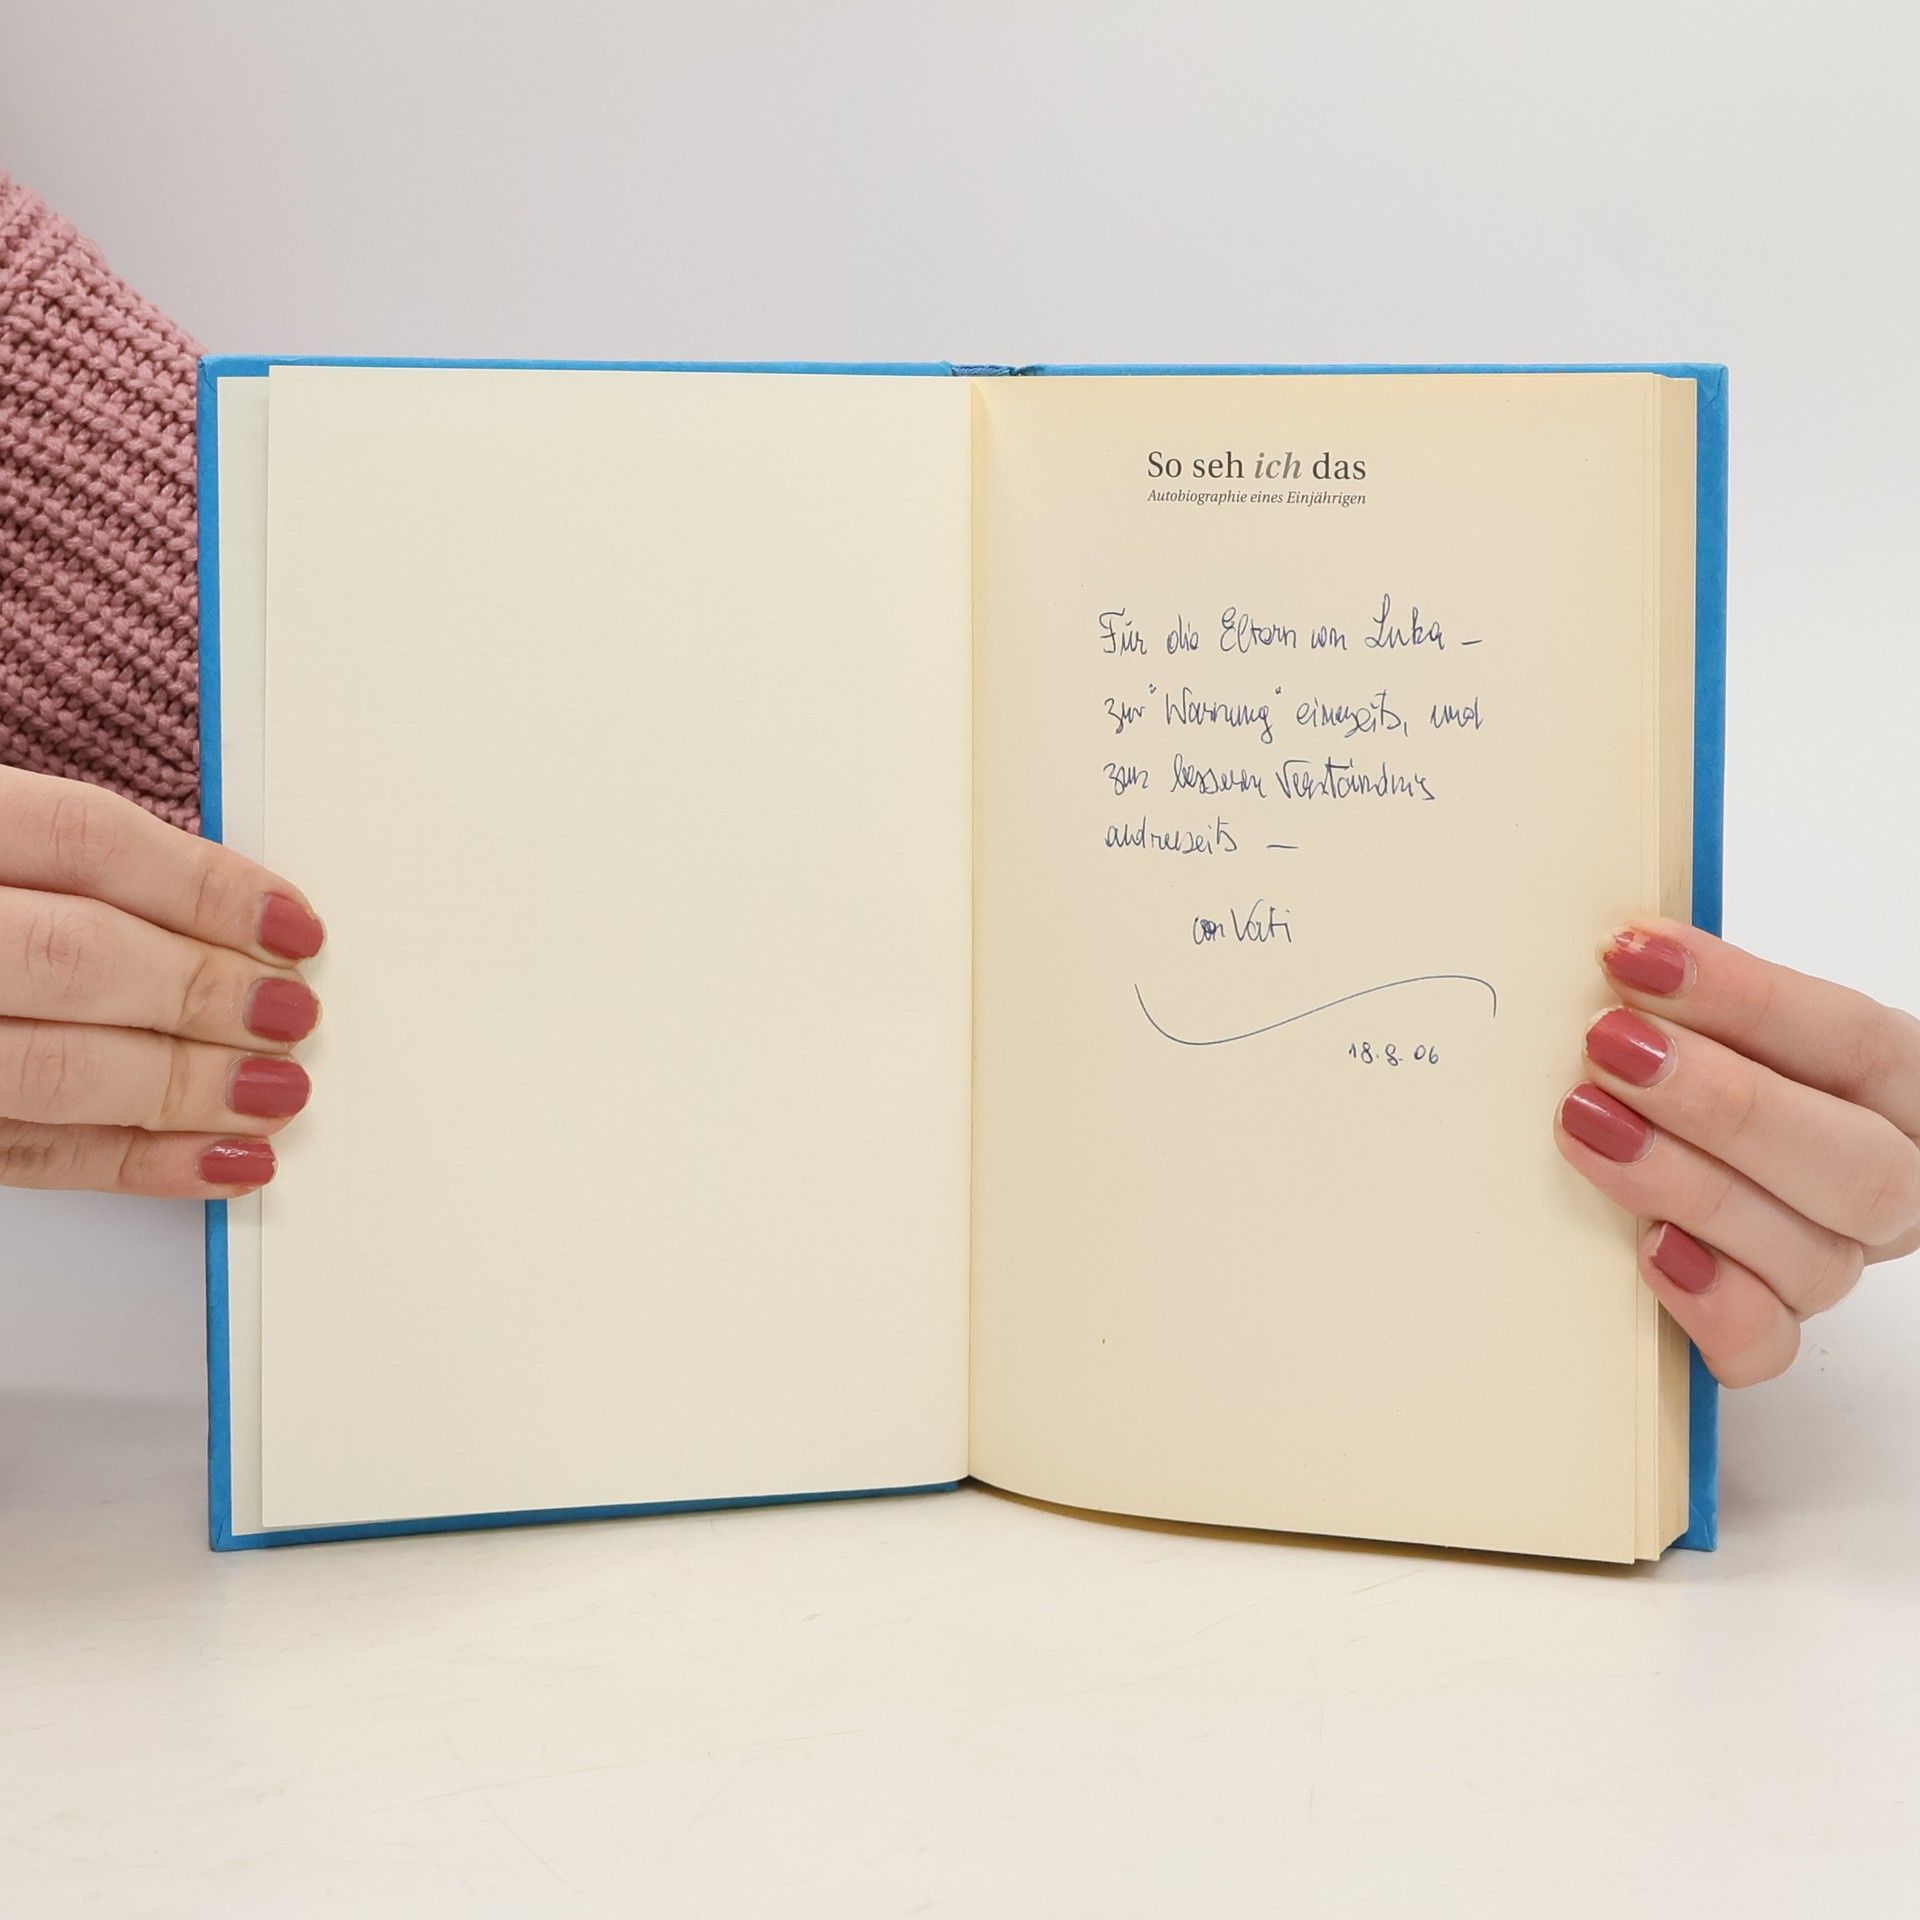 So seh ich das
Autobiographie eines Einjährigen
Für die Eltern von Luka –
zur "Warnung" einerseits, und
zum besseren Verständnis
andrerseits –
von Vati
18.8.06